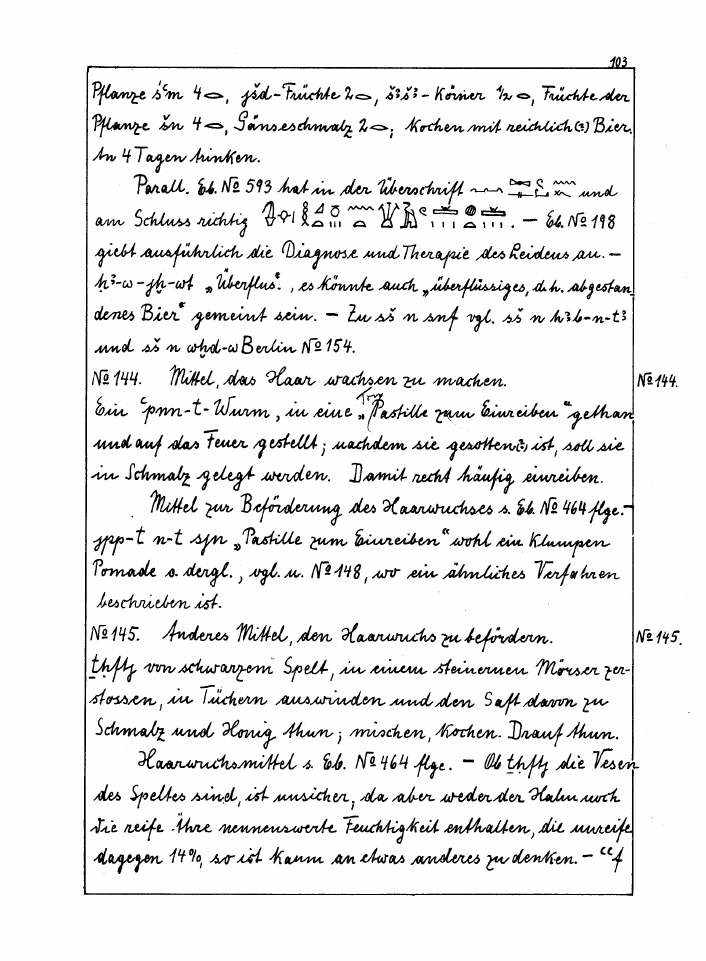 103
Pflanze śꜥm 4 𓂋, jšd-Früchte 2 𓂋, šꜣšꜣ-Körner ½ 𓂋, Früchte der
Pflanze šn 4 𓂋, Gänseschmalz 2 𓂋; Kochen mit reichlich(?) Bier.
An 4 Tagen trinken.
Parall. Eb. № 593 hat in der Überschrift und
am Schluss richtig . — Eb. № 198
giebt ausführlich die Diagnose und Therapie des Leidens an. —
ḥꜣ-w-jḫ-wt „Überflus“, es könnte auch „überflüssiges, d.h. abgestan
denes Bier“ gemeint sein. — Zu sš n snf vgl. sš n hꜣb-n-tꜣ
und sš n wḫd-w Berlin № 154.
№ 144. Mittel, das Haar wachsen zu machen. № 144.
Ein ꜥpnn-t-Wurm, in eine „Pastille zum Einreiben“ gethan
und auf das Feuer gestellt; nachdem sie gesotten(?) ist, soll sie
in Schmalz gelegt werden. Damit recht häufig einreiben.
Mittel zur Beförderung des Haarwuchses s. Eb. № 464 flge.—
jpp-t n-t sjn „Pastille zum Einreiben“ wohl ein Klumpen
Pomade o. dergl., vgl. u. № 148, wo ein ähnliches Verfahren
beschrieben ist.
№ 145. Anderes Mittel, den Haarwuchs zu befördern. № 145.
ṯḥftj von schwarzem Spelt, in einem steinernen Mörser zer-
stossen, in Tüchern auswinden und den Saft davon zu
Schmalz und Honig thun; mischen, Kochen. Drauf thun.
Haarwuchsmittel s. Eb. № 464 flge. — Ob ṯḥftj die Vesen
des Speltes sind, ist unsicher, da aber weder der Halm noch
die reife Ähre nennenswerte Feuchtigkeit enthalten, die unreife
dagegen 14%, so ist kaum an etwas anderes zu denken. — ꜥꜥf